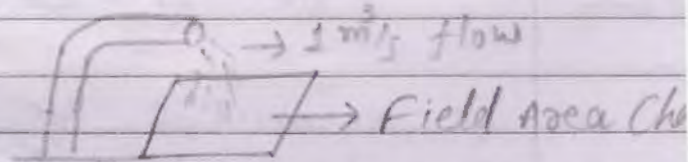 → 1 m³/s flow
→ Field Area Cha